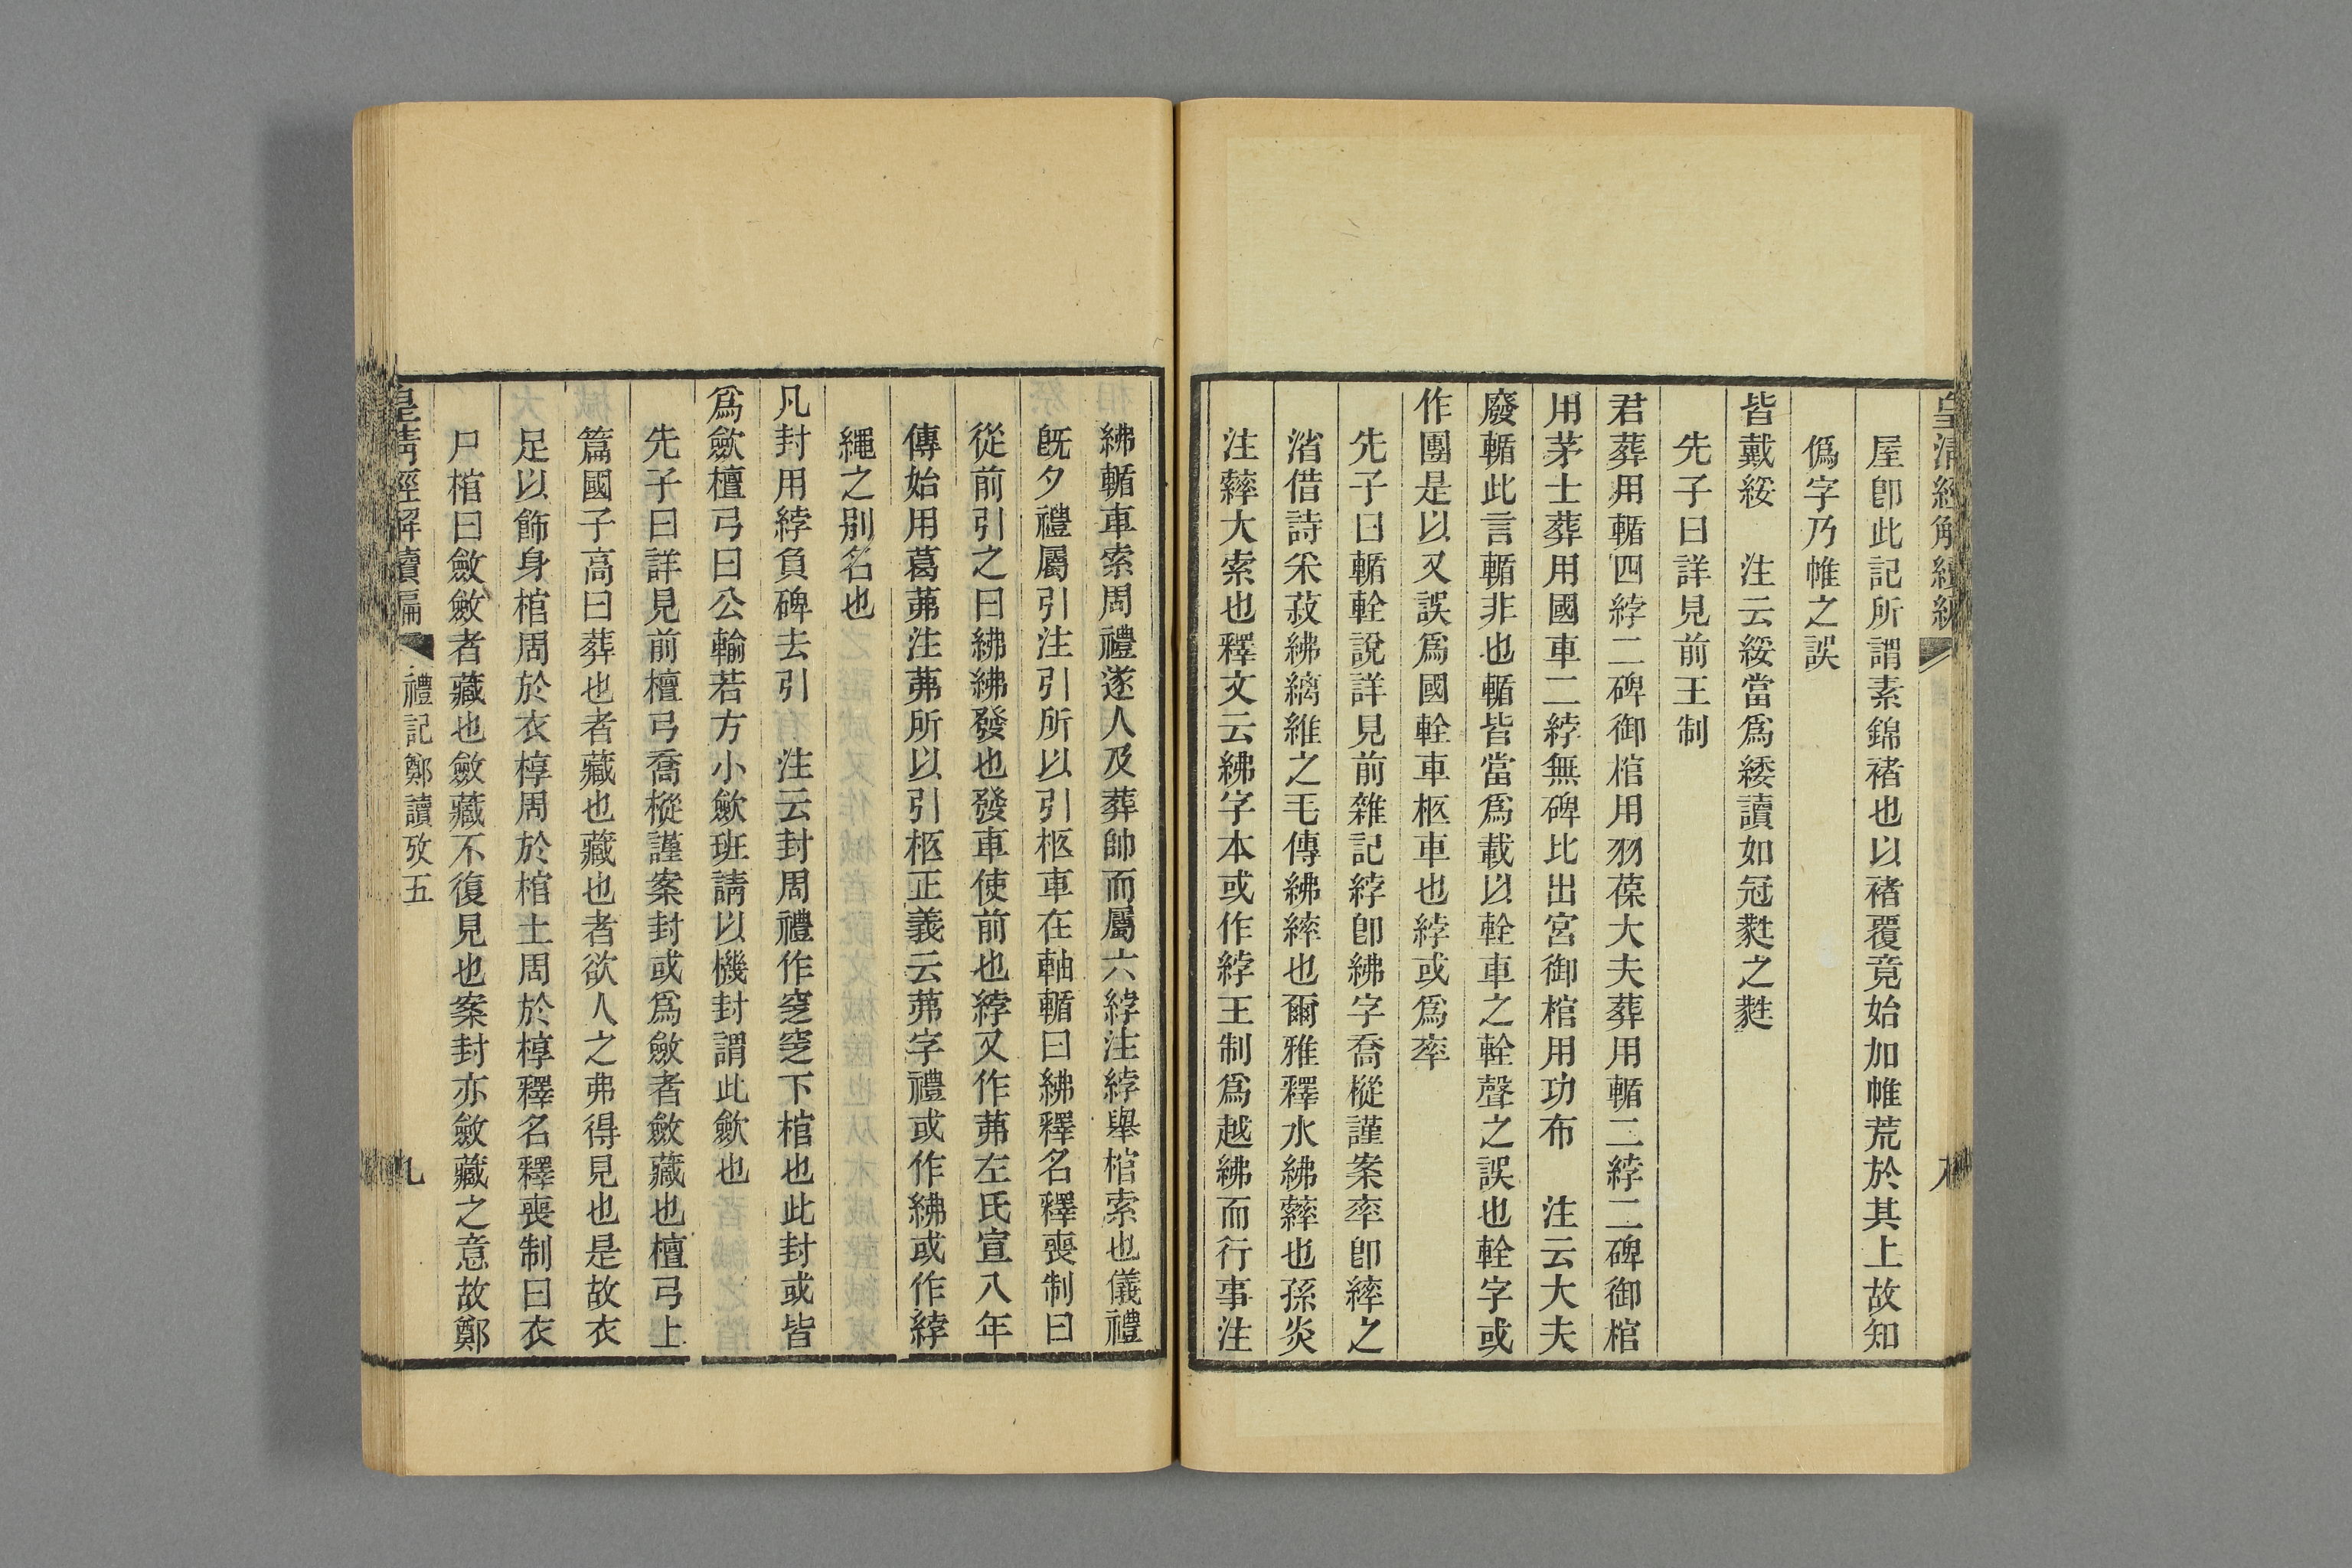 屋卽此記所謂素錦褚也以褚覆竟始加帷荒於其上故知
僞字乃帷之誤
皆戴綏　注云綏當爲緌讀如冠蕤之蕤
先子曰詳見前王制
君葬用輴四綍二碑御棺用羽葆大夫葬用輴二綍二碑御棺
用茅士葬用國車二綍無碑比出宮御棺用功布　注云大夫
廢輴此言輴非也輴皆當爲載以輇車之輇聲之誤也輇字或
作團是以又誤爲國輇車柩車也綍或爲率
先子曰輴輇說詳見前雜記綍卽紼字喬樅謹案率卽繂之
渻借詩采菽紼纚維之毛傳紼繂也爾雅釋水紼䋨也孫炎
注䋨大索也釋文云紼字本或作綍王制爲越紼而行事注
紼輴車索周禮遂人及葬帥而屬六綍注綍舉棺索也儀禮
旣夕禮屬引注引所以引柩車在軸輴曰紼釋名釋喪制曰
從前引之曰紼紼發也發車使前也綍又作茀左氏宣八年
傳始用葛茀注茀所以引柩正義云茀字禮或作紼或作綍
繩之別名也
凡封用綍負碑去引　注云封周禮作窆窆下棺也此封或皆
爲斂檀弓曰公輸若方小斂班請以機封謂此斂也
先子曰詳見前檀弓喬樅謹案封或爲斂者斂藏也檀弓上
篇國子高曰葬也者藏也藏也者欲人之弗得見也是故衣
足以飾身棺周於衣椁周於棺土周於椁釋名釋喪制曰衣
尸棺曰斂斂者藏也斂藏不復見也案封亦斂藏之意故鄭
皇淸經解續編
禮記鄭讀攷五
九